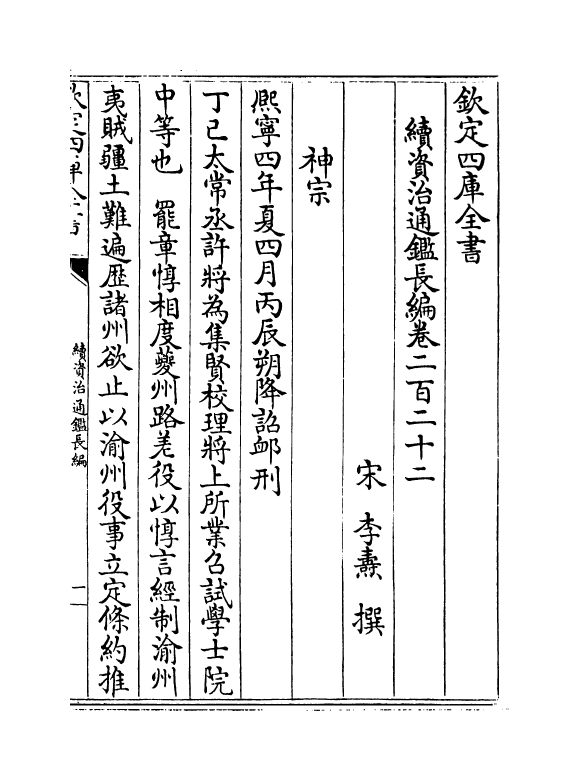 欽定四庫全書
續資治通鑑長編卷二百二十二
宋 李燾 撰
神宗
熙寧四年夏四月丙辰朔降詔䘏刑
丁已太常丞許將為集賢校理將上所業召試學士院
中等也 罷章惇相度夔州路差役以惇言經制渝州
夷賊疆土難遍歴諸州欲止以渝州役事立定條約推
欽定四庫全書
續資治通鑑長編
一